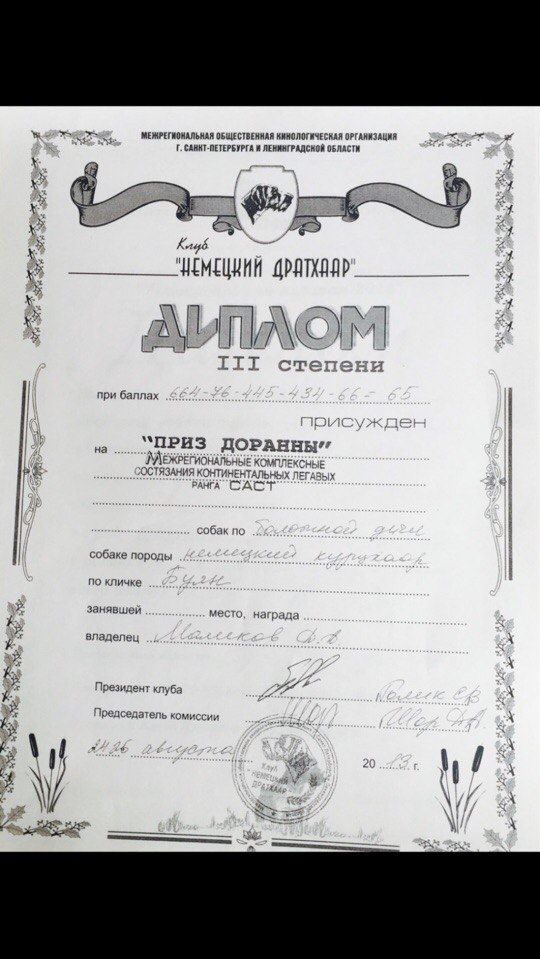 МЕЖРЕГИОНАЛЬНАЯ ОБЩЕСТВЕННАЯ КИНОЛОГИЧЕСКАЯ ОРГАНИЗАЦИЯ
Г. САНКТ-ПЕТЕРБУРГА И ЛЕНИНГРАДСКОЙ ОБЛАСТИ
Клуб
"НЕМЕЦКИЙ ДРАТХААР"
ДИПЛОМ
III степени
при баллах 664-76-445-434-66= 65
присужден
на "ПРИЗ ДОРАННЫ"
МЕЖРЕГИОНАЛЬНЫЕ КОМПЛЕКСНЫЕ
СОСТЯЗАНИЯ КОНТИНЕНТАЛЬНЫХ ЛЕГАВЫХ
РАНГА САСТ
собак по болотной дичи
собаке породы немецкий курцхаар
по кличке Буян
занявшей место, награда
владелец
Президент клуба
Председатель комиссии
августа 20 г.
Клуб
НЕМЕЦКИЙ
ДРАТХААР